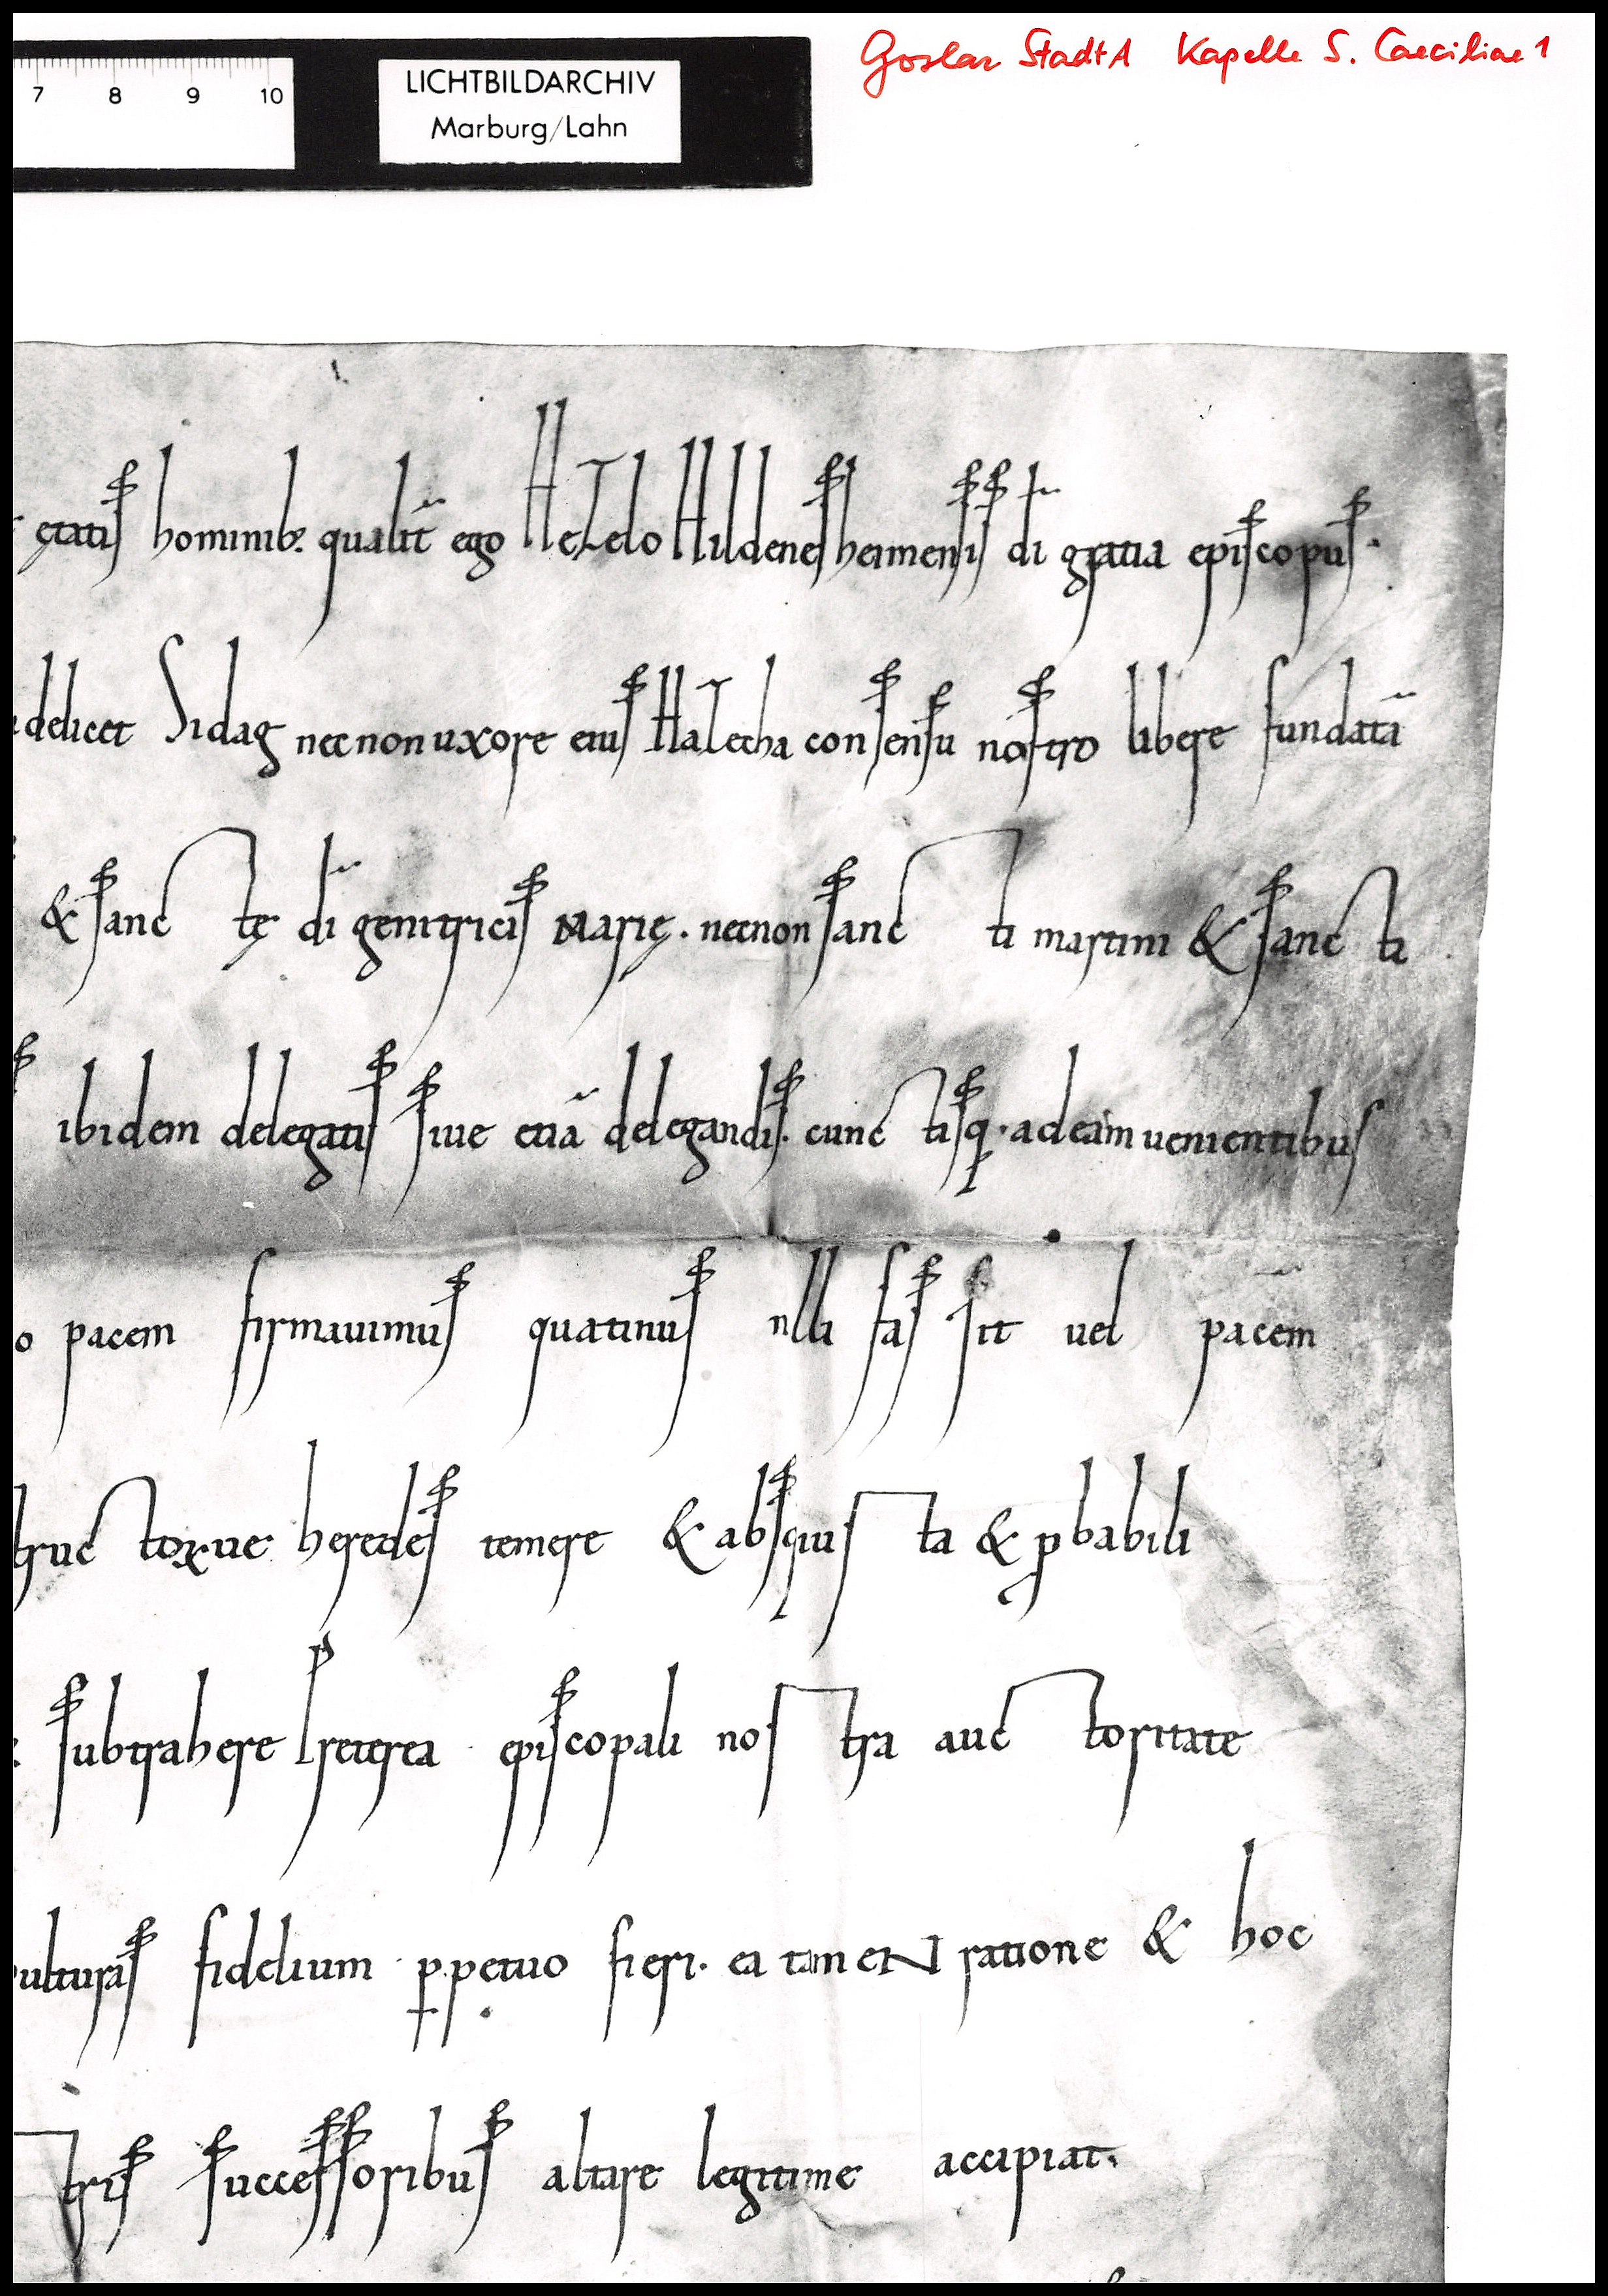 Goslar StadtA Kapelle S. Caeciliae 1
7 8 9 10
LICHTBILDARCHIV
Marburg/Lahn
ętatis hominib; qualit̄ ego Hezelo Hildenesheimensis dī gratia episcopus.
delicet Sidag necnon uxore eius Hazecha consensu nostro libere fundatā
& sanctę dī genitricis Marię. necnon sancti martini & sancti
ibidem delegatis siue etiā delegandis. cunctisq; ad eam uenientibus
o pacem firmauimus quatinus nulli fas sit uel pacem
truc torue heredes temere & absq; iusta & ꝓbabili
subtrahere Preterea episcopali nostra auctoritate
ulturas fidelium ꝑpetuo fieri. ea tameN ratione & hoc
tris successoribus altare legitime accipiat.